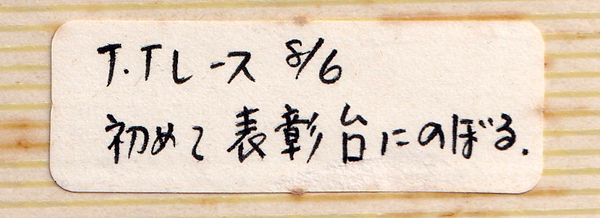 T.Tレース 8/6
初めて表彰台にのぼる.